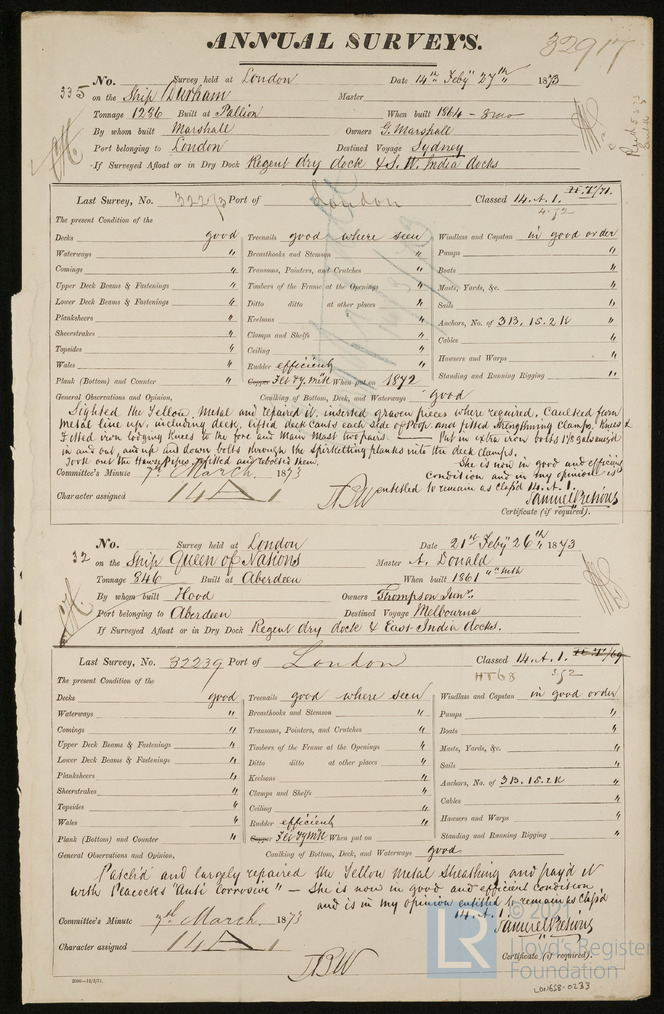 ANNUAL SURVEYS.
32917
No. Survey held at London Date 14th Feby 27th 1873
335 on the Ship Durham Master
Tonnage 1236 Built at Pallion When built 1864 -
By whom built Marshall Owners G. Marshall
Port belonging to London Destined Voyage Sydney
If Surveyed Afloat or in Dry Dock Regent dry dock & S. W. India docks
Last Survey, No. 32273 Port of London Classed 14. A. 1.
The present Condition of the
Decks good Treenails good where seen Windlass and Capstan in good order
Waterways " Breasthooks and Stemson " Pumps "
Comings " Transoms, Pointers, and Crutches " Boats "
Upper Deck Beams & Fastenings " Timbers of the Frame at the Openings " Masts, Yards, &c. "
Lower Deck Beams & Fastenings " Ditto ditto at other places " Sails "
Planksheers " Keelsons " Anchors, No. of 3B. 1S. 2K "
Sheerstrakes " Clamps and Shelfs " Cables "
Topsides " Ceiling " Hawsers and Warps "
Wales " Rudder efficient Standing and Running Rigging "
Plank (Bottom) and Counter " Copper Felt & Y. Mtl When put on 1872
General Observations and Opinion, Caulking of Bottom, Deck, and Waterways good
Sighted the Yellow Metal and repaired it, inserted graven pieces where required, Caulked from
Metal line up, including deck, lifted deck cants each side of Poop and fitted strengthening clamps, Knees &
Fitted iron lodging Knees to the fore and Main Mast two pairs. Put in extra iron bolts galvanized
in and out and up and down bolts through the Spirketting planks into the deck clamps.
Took out the Hawse Pipes, refitted and rebolted them. She is now in good and efficient
condition and in my opinion is
entitled to remain as class'd 14. A. 1.
Committee's Minute 7th March 1873
Character assigned 14 A 1
Certificate (if required).
No. Survey held at London Date 21st Feby 26th 1873
32 on the Ship Queen of Nations Master A. Donald
Tonnage 846 Built at Aberdeen When built 1861 4 mth
By whom built Hood Owners Thompson Junr.
Port belonging to Aberdeen Destined Voyage Melbourne
If Surveyed Afloat or in Dry Dock Regent dry dock & East India docks.
Last Survey, No. 32239 Port of London Classed 14. A. 1. H.T/69
HT63
The present Condition of the
Decks good Treenails good where seen Windlass and Capstan in good order
Waterways " Breasthooks and Stemson " Pumps "
Comings " Transoms, Pointers, and Crutches " Boats "
Upper Deck Beams & Fastenings " Timbers of the Frame at the Openings " Masts, Yards, &c. "
Lower Deck Beams & Fastenings " Ditto ditto at other places " Sails "
Planksheers " Keelsons " Anchors, No. of 3B. 1S. 2K "
Sheerstrakes " Clamps and Shelfs " Cables "
Topsides " Ceiling " Hawsers and Warps "
Wales " Rudder efficient " Standing and Running Rigging "
Plank (Bottom) and Counter " Copper Felt & Y Mtl When put on
General Observations and Opinion, Caulking of Bottom, Deck, and Waterways good
Patch'd and largely repaired the Yellow Metal Sheathing and pay'd it
with Peacock's "Anti Corrosive" — She is now in good and efficient condition
and is in my opinion entitled to remain as class'd
14. A. 1.
Committee's Minute 7th March 1873
Character assigned 14 A 1
Certificate (if required).
Lloyd's Register
Foundation
LR
LON658-0233